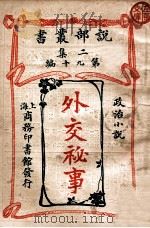 說部叢書
第二集九十編
政治小說
外交秘事
上海商務印書館發行